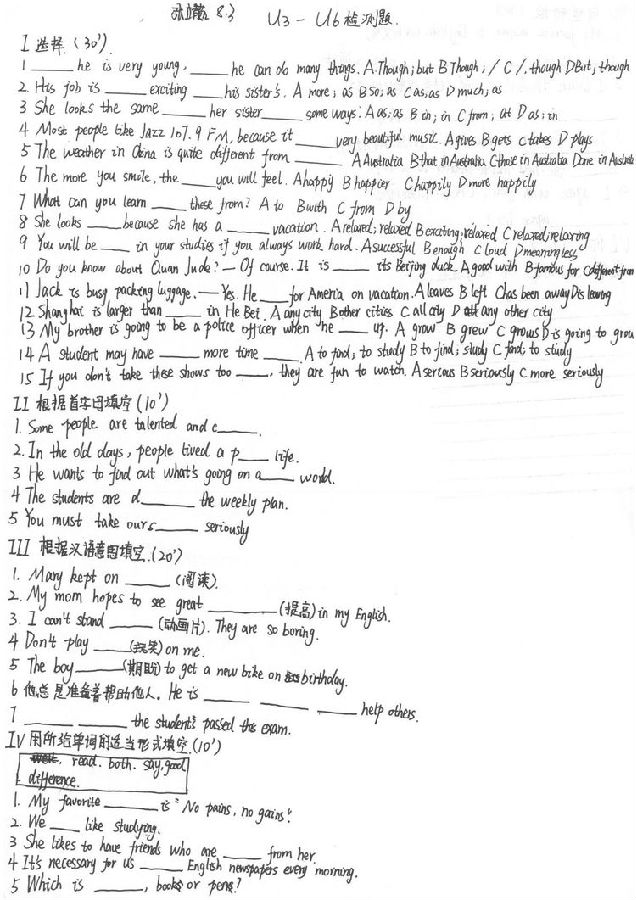 8.3 U3 - U6检测题.
I 选择 (30')
1 ____ he is very young, ____ he can do many things. A.Though; but B Though; / C /. though D But; though
2. His job is ____ exciting ____ his sister's. A more; as B so; as C as; as D much; as
3 She looks the same ____ her sister ____ some ways. A as; as B in; in C from; at D as; in
4. Most people like Jazz 107.9 FM, because it ____ very beautiful music. A gives B gets C takes D plays
5 The weather in China is quite different from ____ A Australia B that in Australia C those in Australia D one in Australia
6 The more you smile, the ____ you will feel. A happy B happier C happily D more happily
7 What can you learn ____ these from? A to B with C from D by
8 She looks ____ because she has a ____ vacation. A relaxed; relaxed B exciting; relaxed C relaxed; relaxing
9 You will be ____ in your studies if you always work hard. A successful B enough C loud D meaningless
10 Do you know about Quan Jude? — Of course. It is ____ its Beijing duck. A good with B famous for C different from
11 Jack is busy packing luggage. — Yes. He ____ for America on vacation. A leaves B left C has been away D is leaving
12. Shanghai is larger than ____ in He Bei. A any city B other cities C all city D any other city
13 My brother is going to be a police officer when he ____ up. A grow B grew C grows D is going to grow
14 A student may have ____ more time ____. A to find; to study B to find; study C find; to study
15 If you don't take these shows too ____, they are fun to watch. A serious B seriously C more seriously
II 根据首字母填空 (10')
1. Some people are talented and c____.
2. In the old days, people lived a p____ life.
3 He wants to find out what's going on a____ world.
4 The students are d____ the weekly plan.
5 You must take ours____ seriously
III 根据汉语意思填空.(20')
1. Mary kept on ____ (阅读).
2. My mom hopes to see great ____ (提高) in my English.
3. I can't stand ____ (动画片). They are so boring.
4 Don't play ____ (玩笑) on me.
5 The boy ____ (期盼) to get a new bike on birthday.
6 他总是准备着帮助他人. He is ____ ____ ____ help others.
7 ____ ____ the students passed the exam.
IV 用所给单词的适当形式填空.(10')
read. both. say, good
difference.
1. My favorite ____ is "No pains, no gains".
2. We ____ like studying.
3 She likes to have friends who are ____ from her.
4 It's necessary for us ____ English newspapers every morning.
5 Which is ____, books or pens?